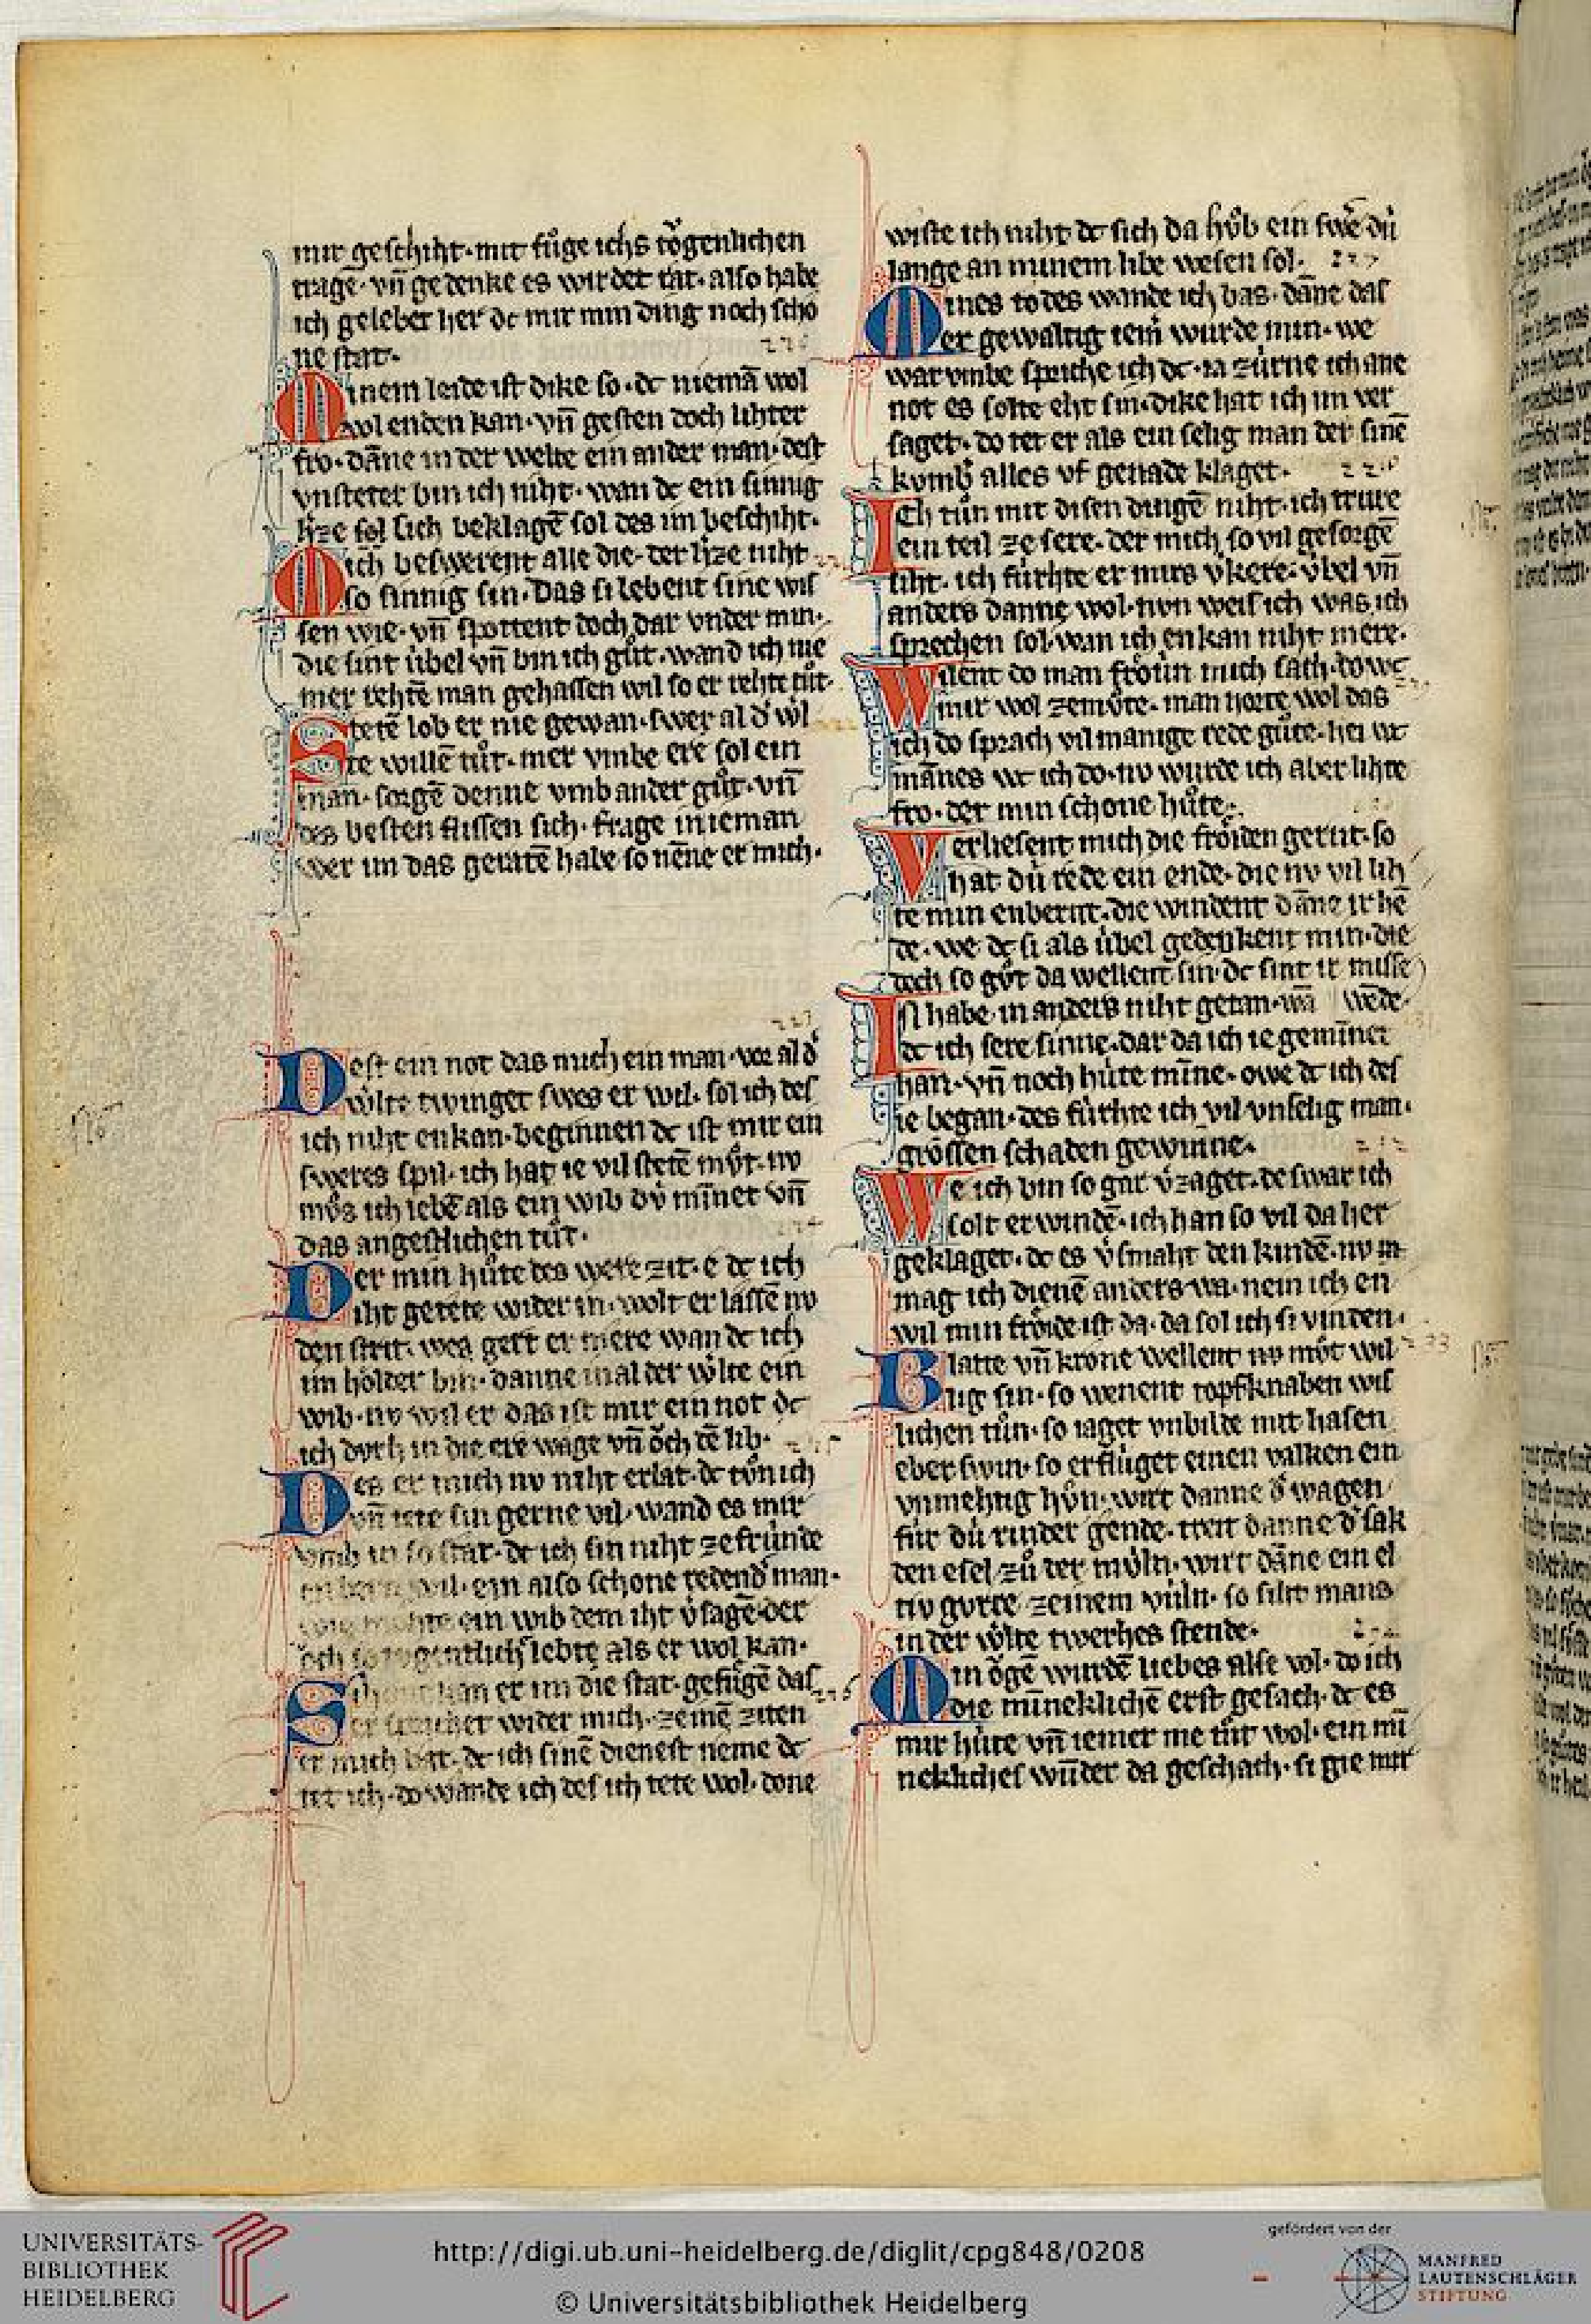 mir geschiht·mit fůge ichs tǒgenlichen
trage᷑·vn̄ gedenke es wirdet rat·also habe
ich gelebet her dc mir min ding noch scho
ne stat·
Minem leide ist dike so·dc niemā wol
wol enden kan·vn̄ gesten doch lihter
fro·dāne in der welte ein ander man·dest
vnsteter bin ich niht·wan dc ein sinnig
h͛ze sol sich beklagē sol des im beschiht·
Mich beswerent alle die·der h͛ze niht
so sinnig sin·Das si lebent sine wis
sen wie·vn̄ spottent doch dar vnder min·
die sint úbel vn̄ bin ich gůt·wand ich nie
mer rehtē man gehassen wil so er rehte tůt·
Stetē lob er nie gewan·swer al d͛ w͛l
te willē tůt·mer vmbe ere sol ein
man·sorgē denne vmb ander gůt·vn̄
des besten flissen sich·frage in ieman
wer im das geratē habe so nēne er mich·
Dest ein not das mich ein man·vor al d͛
w͛lte twinget swes er wil·sol ich des
ich niht enkan·beginnen dc ist mir ein
sweres spil·ich hat ie vil stetē mv̊t·nv
mv̊s ich lebē als ein wib dú minnet vn̄
das angestlichen tůt·
Der min hůte des were zit·e dc ich
iht getete wider in·wolt er lassē nv
den strit·wes gert er mere wan dc ich
im holder bin·danne in al der w͛lte ein
wib·nv wil er das ist mir ein not dc
ich dvrh in die ere wage vn̄ ǒch dē lib·
Des er mich nv niht erlat·dc tůn ich
vn̄ tete sin gerne vil·wand es mir
vmb in so stat·dc ich sin niht ze frúnde
wil·ein also schone redend͛ man·
ein wib dem iht v͛sagē·der
ǒch so tvgentlich͛ lebte als er wol kan·
kan er im die stat·gefůgē das
wider mich·zeinē ziten
er mich bat·dc ich sinē dienest neme dc
tet ich·do wande ich des ich tete wol·done
wiste ich niht dc sich da hv̊b ein swe͛ dú
lange an minem libe wesen sol·
Mines todes wande ich bas·dāne das
er gewaltig iem͛ wurde min·we
war vmbe spriche ich dc·ia zúrne ich ane
not es solte eht sin·dike hat ich im ver
saget·do tet er als ein selig man der sinē
kvmb͛ alles vf genade klaget·
Ich tůn mit disen dingē niht·ich trure
ein teil ze sere·der mich so vil gesorgē
siht·ich fúrhte er mirs v͛kere·v̇bel vn̄
anders danne wol·nvn weis ich was ich
sprechen sol·wan ich enkan niht mere·
Wilent do man frǒ̈in mich sach·do wc
mir wol zemv̊te·man horte wol das
ich do sprach vil manige rede gůte·hei wc
mānes wc ich do·nv wurde ich aber lihte
fro·der min schone hůte·
Verliesent mich die frǒiden gernt·so
hat dú rede ein ende·die nv vil lih
te min enbernt·die windent dāne ir hē
de·we dc si als úbel gedenkent min·die
doch so gv̊t da wellent sin·dc sint ir misse
Ich habe in anders niht getan·wā wēde·
dc ich sere sinne·dar da ich ie gemīnet
han·vn̄ noch húte mīne·owe dc ich des
ie began·des fúrhte ich vil vnselig man·
grossen schaden gewinne·
We ich bin so gar v͛zaget·de swar ich
solt erwindē·ich han so vil da her
geklaget·dc es v͛smaht den kindē·nv in
mag ich dienē anders wa·nein ich en
wil min frǒide ist da·da sol ich si vinden·
Blatte vn̄ krone wellent nv mv̊t wil
lig sin·so wenent topfknaben wis
lichen tůn·so iaget vnbilde mit hasen
eber swin·so erflúget einen valken ein
vnmehtig hůn·wirt danne d͛ wagen
fúr dú rinder gende·treit danne d͛ sak
den esel zů der mv́ln·wirt dāne ein el
tiv gvrre zeinem vúln·so siht mans
in der w͛lte twerhes stende·
Min ǒgē wurdē liebes alse vol·do ich
die mīneklichē erst gesach·dc es
mir húte vn̄ iemer me tůt wol·ein mī
neklichel wūder da geschach·si gie mir
UNIVERSITÄTS-
BIBLIOTHEK
HEIDELBERG
http://digi.ub.uni-heidelberg.de/diglit/cpg848/0208
© Universitätsbibliothek Heidelberg
gefördert von der
MANFRED
LAUTENSCHLÄGER
STIFTUNG